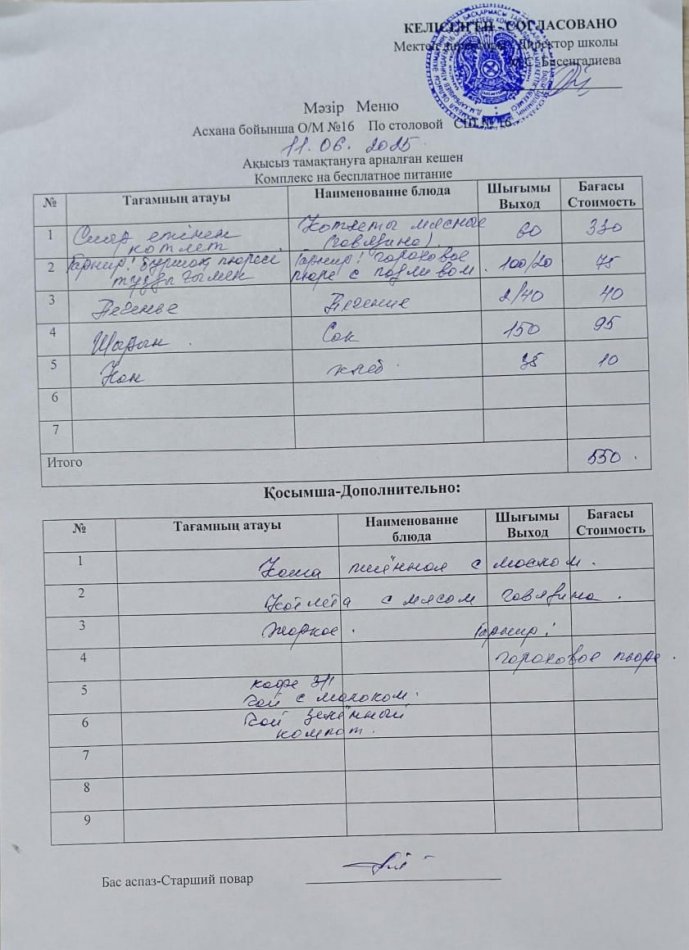 КЕЛІСІЛГЕН - СОГЛАСОВАНО
Мектеп директоры Директор школы
Басенгалиева
Мәзір Меню
Асхана бойынша О/М №16 По столовой СШ № 16
11.06.2025.
Ақысыз тамақтануға арналған кешен
Комплекс на бесплатное питание
№ Тағамның атауы Наименование блюда Шығымы Выход Бағасы Стоимость
1 Сиыр етінен котлет Котлеты мясные (говядина). 60 330
2 Гарнир: бұршақ пюресі тұздығымен Гарнир: гороховое пюре с подливом. 100/20 75
3 Печенье Печение 2/40 40
4 Шырын. Сок 150 95
5 Нан хлеб. 35 10
6
7
Итого 550.
Қосымша-Дополнительно:
№ Тағамның атауы Наименование блюда Шығымы Выход Бағасы Стоимость
1 Каша пшённая с молоком.
2 Котлета с мясом говядина.
3 Жаркое. Гарнир:
4 гороховое пюре.
5 кофе 3/1
чай с молоком.
6 Чай зелённый
компот.
7
8
9
Бас аспаз-Старший повар